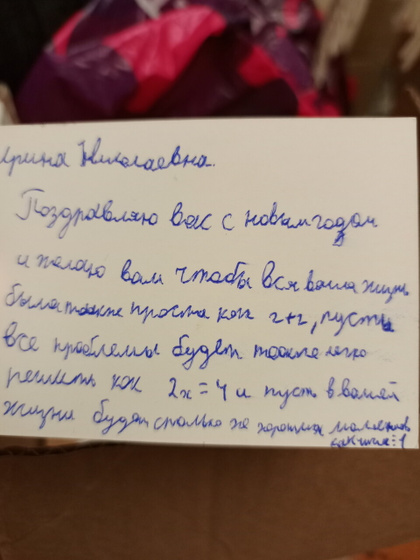 Ирина Николаевна.
Поздравляю вас с новым годом
и желаю вам чтобы вся ваша жизнь
была также проста как 2+2, пусть
все проблемы будет также легко
решить как 2x=4 и пусть в вашей
жизни будет столько же хороших моментов